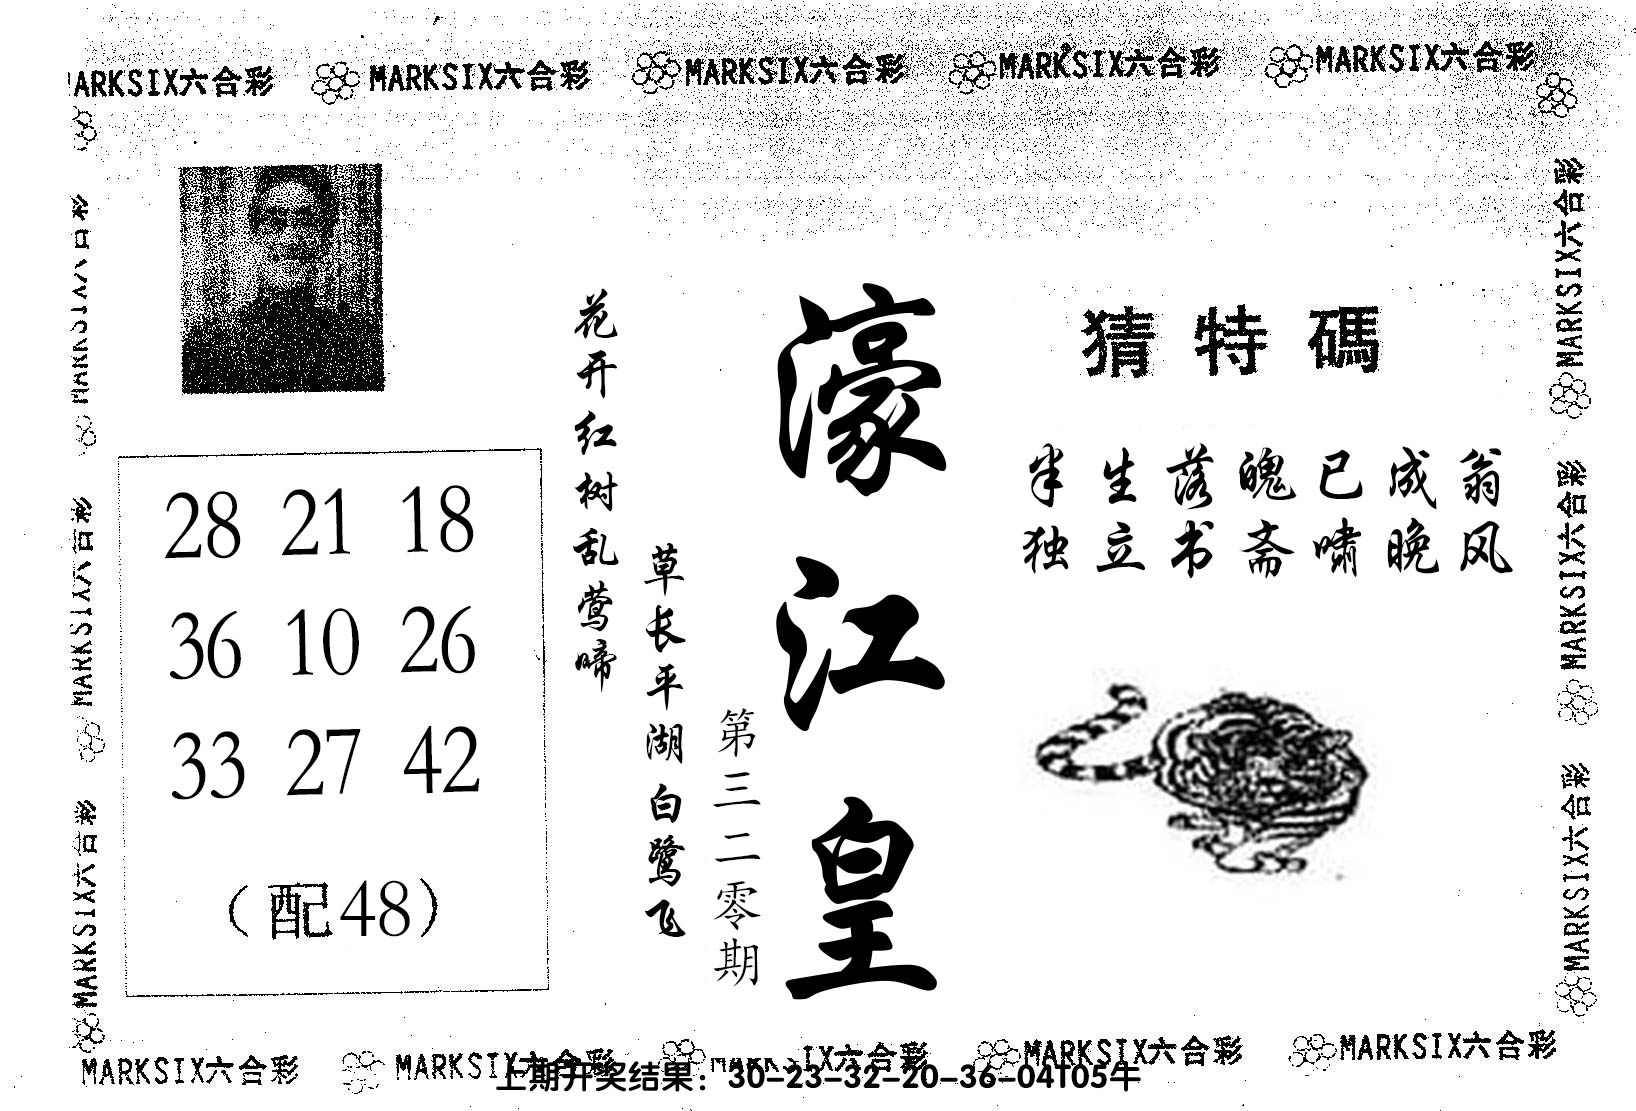 MARKSIX六合彩 MARKSIX六合彩 MARKSIX六合彩 MARKSIX六合彩 MARKSIX六合彩
MARKSIX六合彩
MARKSIX六合彩
MARKSIX六合彩
28 21 18
36 10 26
33 27 42
（配48）
花开红树乱莺啼
草长平湖白鹭飞
第三二零期
濠江皇
猜特碼
半生落魄已成翁
独立书斋啸晚风
MARKSIX六合彩
MARKSIX六合彩
MARKSIX六合彩
MARKSIX六合彩 MARKSIX六合彩 MARKSIX六合彩 MARKSIX六合彩 MARKSIX六合彩
上期开奖结果：30-23-32-20-36-04T05牛